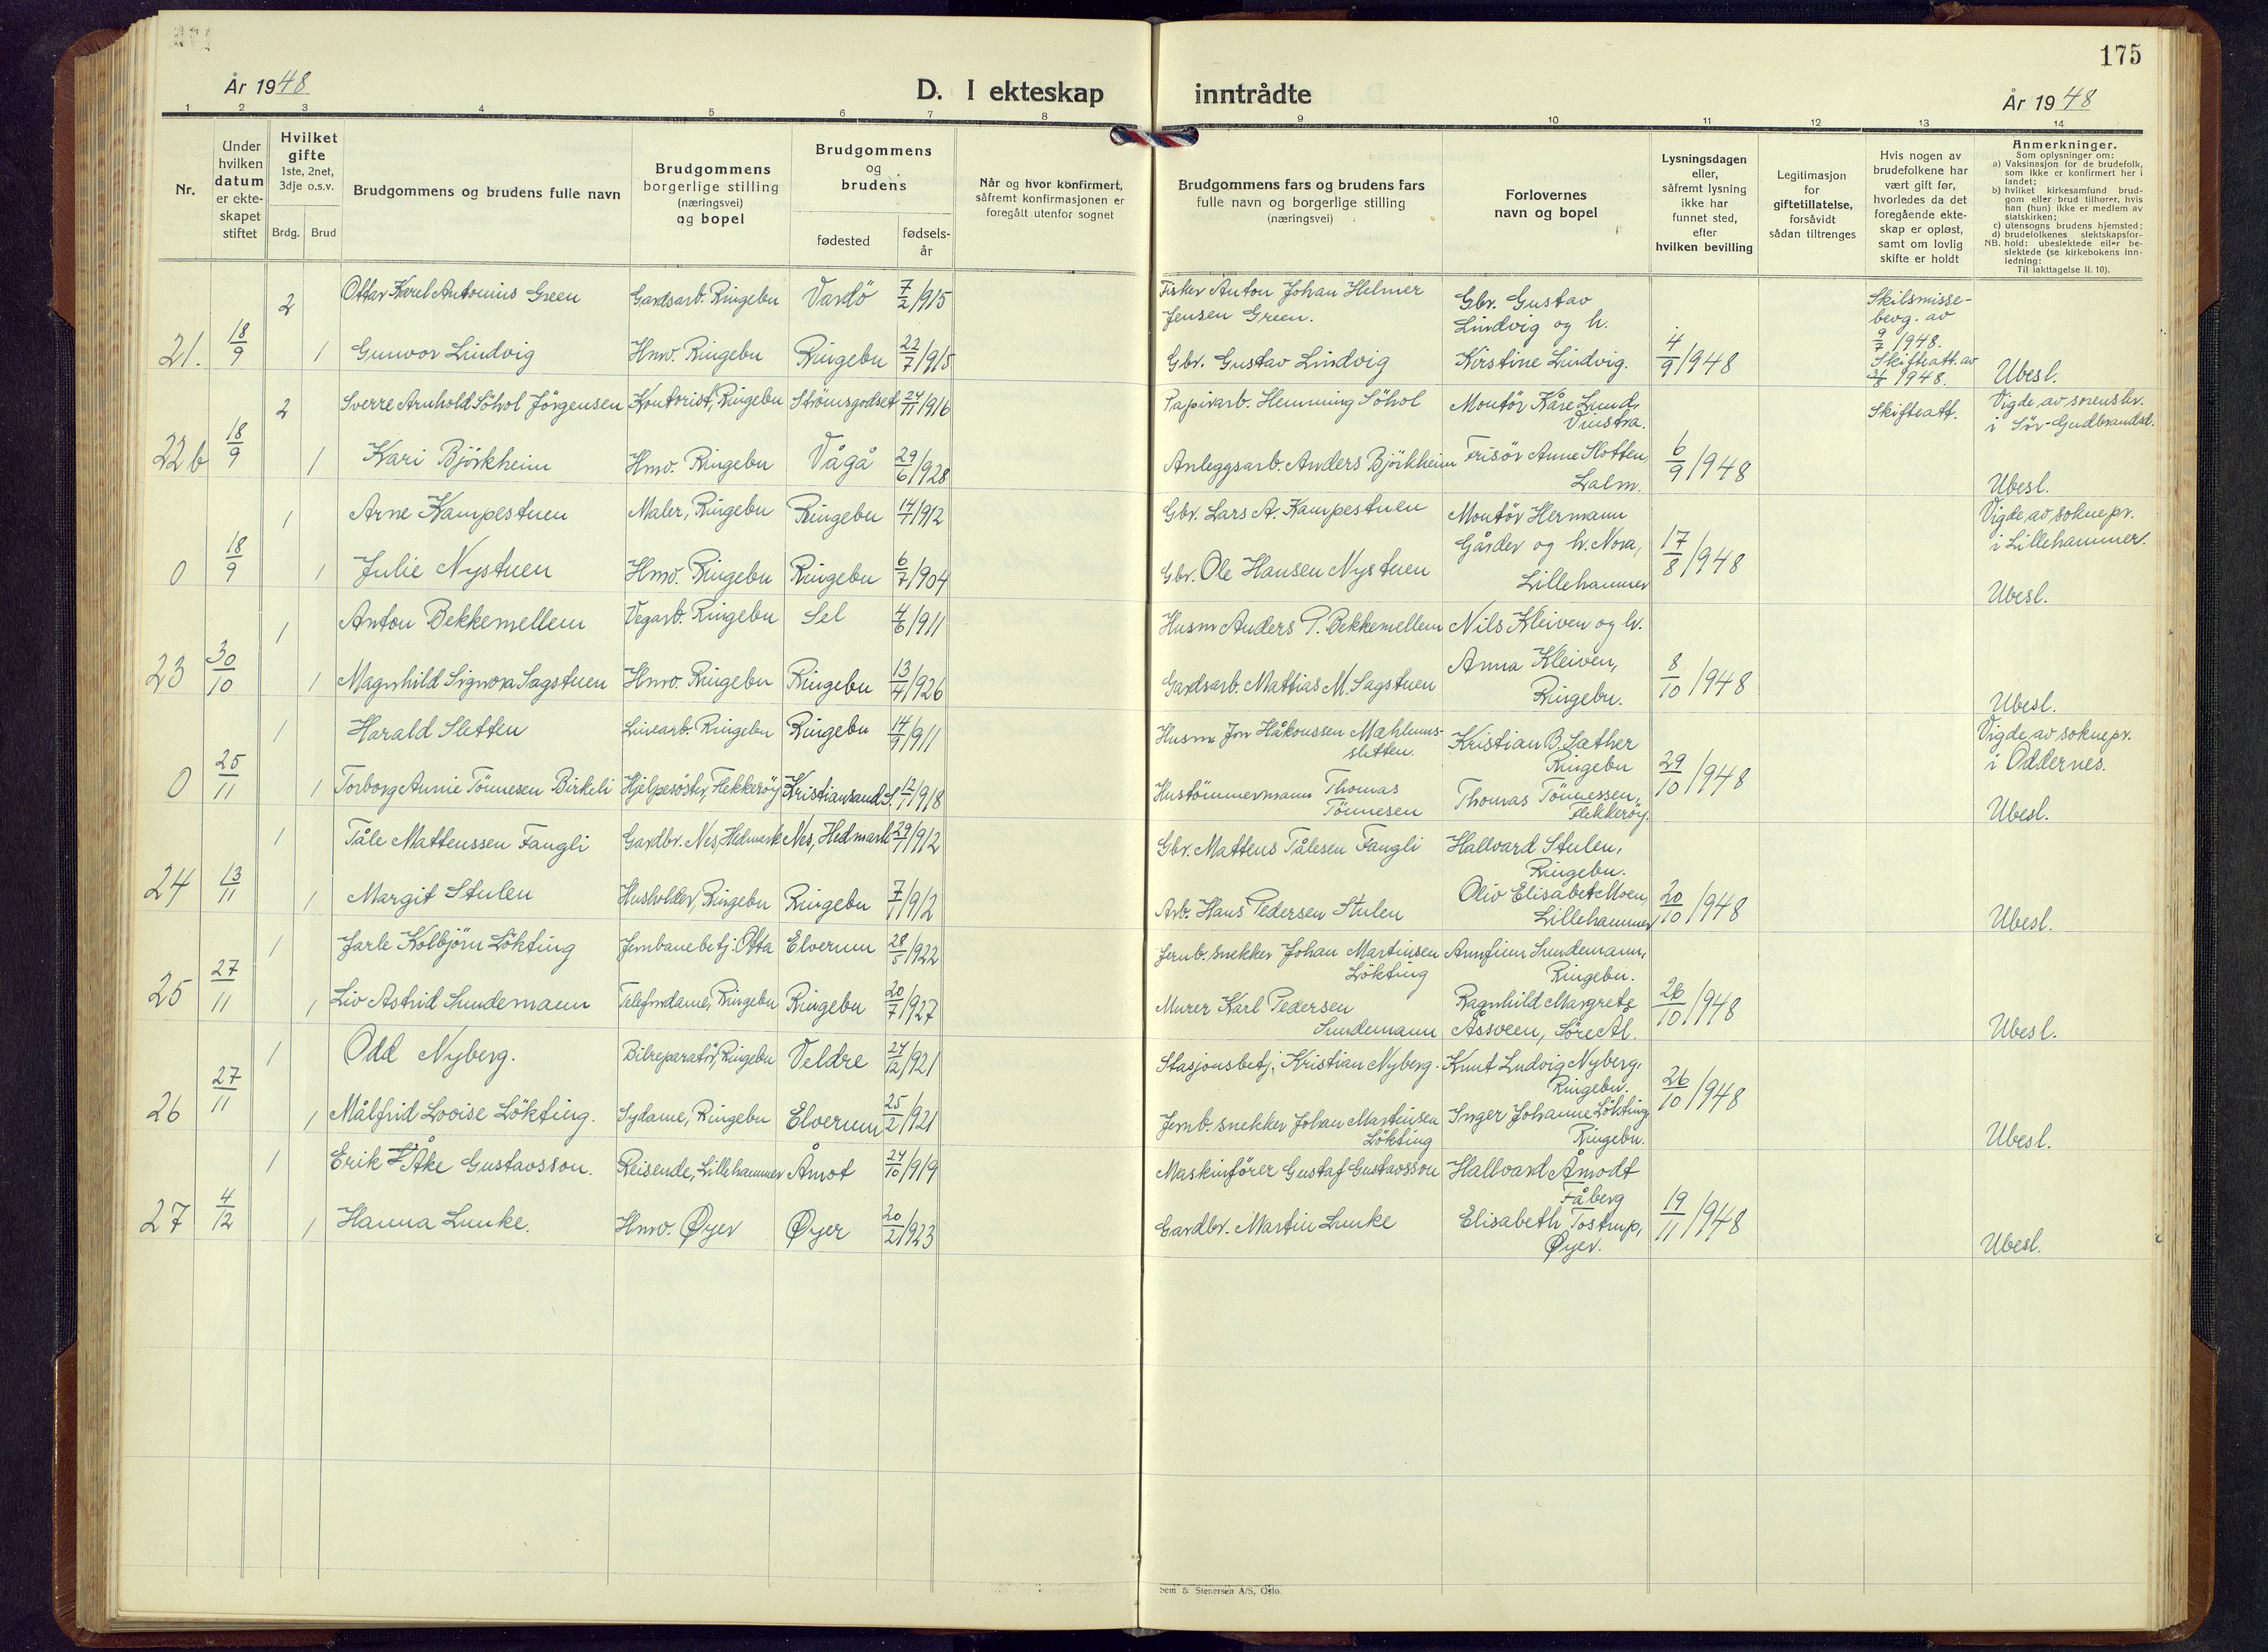 175
År 1948
D. I ekteskap inntrådte
År 1948
1 2 3 4 5 6 7 8 9 10 11 12 13 14
Nr.
Under hvilken datum er ekte-skapet stiftet
Hvilket gifte 1ste, 2net, 3dje o.s.v.
Brdg. Brud
Brudgommens og brudens fulle navn
Brudgommens borgerlige stilling (næringsvei) og bopel
Brudgommens og brudens
fødested
fødsels-år
Når og hvor konfirmert, såfremt konfirmasjonen er foregått utenfor sognet
Brudgommens fars og brudens fars fulle navn og borgerlige stilling (næringsvei)
Forlovernes navn og bopel
Lysningsdagen eller, såfremt lysning ikke har funnet sted, efter hvilken bevilling
Legitimasjon for giftetillatelse, forsåvidt sådan tiltrenges
Hvis nogen av brudefolkene har vært gift før, hvorledes da det foregående ekte-skap er opløst, samt om lovlig skifte er holdt
Anmerkninger.
Som oplysninger om:
a) Vaksinasjon for de brudefolk, som ikke er konfirmert her i landet;
b) hvilket kirkesamfund brud-gom eller brud tilhører, hvis han (hun) ikke er medlem av statskirken;
c) utensogns brudens hjemsted;
d) brudefolkenes slektskapsfor-hold: ubeslektede eller be-slektede (se kirkebokens inn-ledning:
NB.
Til iakttagelse II. 10).
2 Ottar Karel Antonius Green Gardsarb. Ringebu Vardö 7/2/915 Fisker Anton Johan Helmer Jensen Green. Gbr. Gustav Lindvig og h. Skilsmisse-bevg. av 9/7 1948.
21. 18/9 1 Gunvor Lindvig Hmv. Ringebu Ringebu 22/7/915 Gbr. Gustav Lindvig Kirstine Lindvig. 4/9/1948 Skifteatt. av 1948. Ubesl.
2 Sverre Arnhold Söhol Jörgensen Kontorist, Ringebu Strömsgodset 24/11/916 Papirarb. Hemming Söhol Montör Kåre Lund, Vinstra. Skifteatt. Vigde av sorenskr. i Sör-Gudbrandsd.
22b 18/9 1 Kari Björkheim Hmv. Ringebu Vågå 29/6/928 Anleggsarb. Anders Björkheim Frisör Anne Slotten, Lalm. 6/9/1948 Ubesl.
1 Arne Kampestuen Maler, Ringebu Ringebu 14/7/912 Gbr. Lars A. Kampestuen Montör Hermann Gårder og h. Nora, Vigde av soknepr. i Lillehammer.
0 18/9 1 Julie Nystuen Hmv. Ringebu Ringebu 6/7/904 Gbr. Ole Hansen Nystuen Lillehammer 17/8/1948 Ubesl.
1 Anton Bekkemellem Vegarb. Ringebu Sel 4/6/911 Husm Anders P. Bekkemellem Nils Kleiven og h.
23 30/10 1 Magnhild Signora Sagstuen Hmv. Ringebu Ringebu 13/4/926 Gardsarb. Mattias M. Sagstuen Anna Kleiven, Ringebu. 8/10/1948 Ubesl.
1 Harald Sletten Linearb. Ringebu Ringebu 14/9/911 Husm Jon Håkonssen Mæhlums-sletten. Kristian B. Sæther Ringebu Vigde av soknepr. i Oddernes.
0 25/11 1 Torborg Annie Tönnesen Birkeli Hjelpesöster, Flekkeröy Kristiansand S. 12/1/918 Hustömmermann Thomas Tönnesen Thomas Tönnessen, Flekkeröy. 29/10/1948 Ubesl.
1 Tåle Mattenssen Fangli Gardbr. Nes, Hedmark Nes, Hedmark 29/1/912 Gbr. Mattens Tålesen Fangli Hallvard Stulen, Ringebu.
24 13/11 1 Margit Stulen Husholder, Ringebu Ringebu 7/1/912 Arb. Hans Pedersen Stulen Oliv Elisabet Moen, Lillehammer 20/10/1948 Ubesl.
1 Jarle Kolbjörn Lökting Jernbanebetj. Otta Elverum 28/5/922 Jernb. snekker Johan Martinsen Lökting Arnfinn Sundemann, Ringebu.
25 27/11 1 Liv Astrid Sundemann Telefondame, Ringebu Ringebu 20/7/927 Murer Karl Pedersen Sundemann Ragnhild Margrete Åssveen, Söre Ål. 26/10/1948 Ubesl.
1 Odd Nyberg. Bilreparatör, Ringebu Veldre 24/12/921 Stasjonsbetj. Kristian Nyberg. Knut Ludvig Nyberg, Ringebu.
26 27/11 1 Målfrid Lovise Lökting. Sydame, Ringebu Elverum 25/2/921 Jernb. snekker Johan Martinsen Lökting Inger Johanne Lökting Ringebu. 26/10/1948 Ubesl.
1 Erik Åke Gustavsson. Reisende, Lillehammer Åmot 24/10/919 Maskinförer Gustaf Gustavsson Hallvard Åmodt Fåberg
27 4/12 1 Hanna Lunke. Hmv. Øyer Øyer 20/2/923 Gardbr. Martin Lunke Elisabeth Tostrup, Øyer. 19/11/1948 Ubesl.
Sem & Stenersen A/S, Oslo.